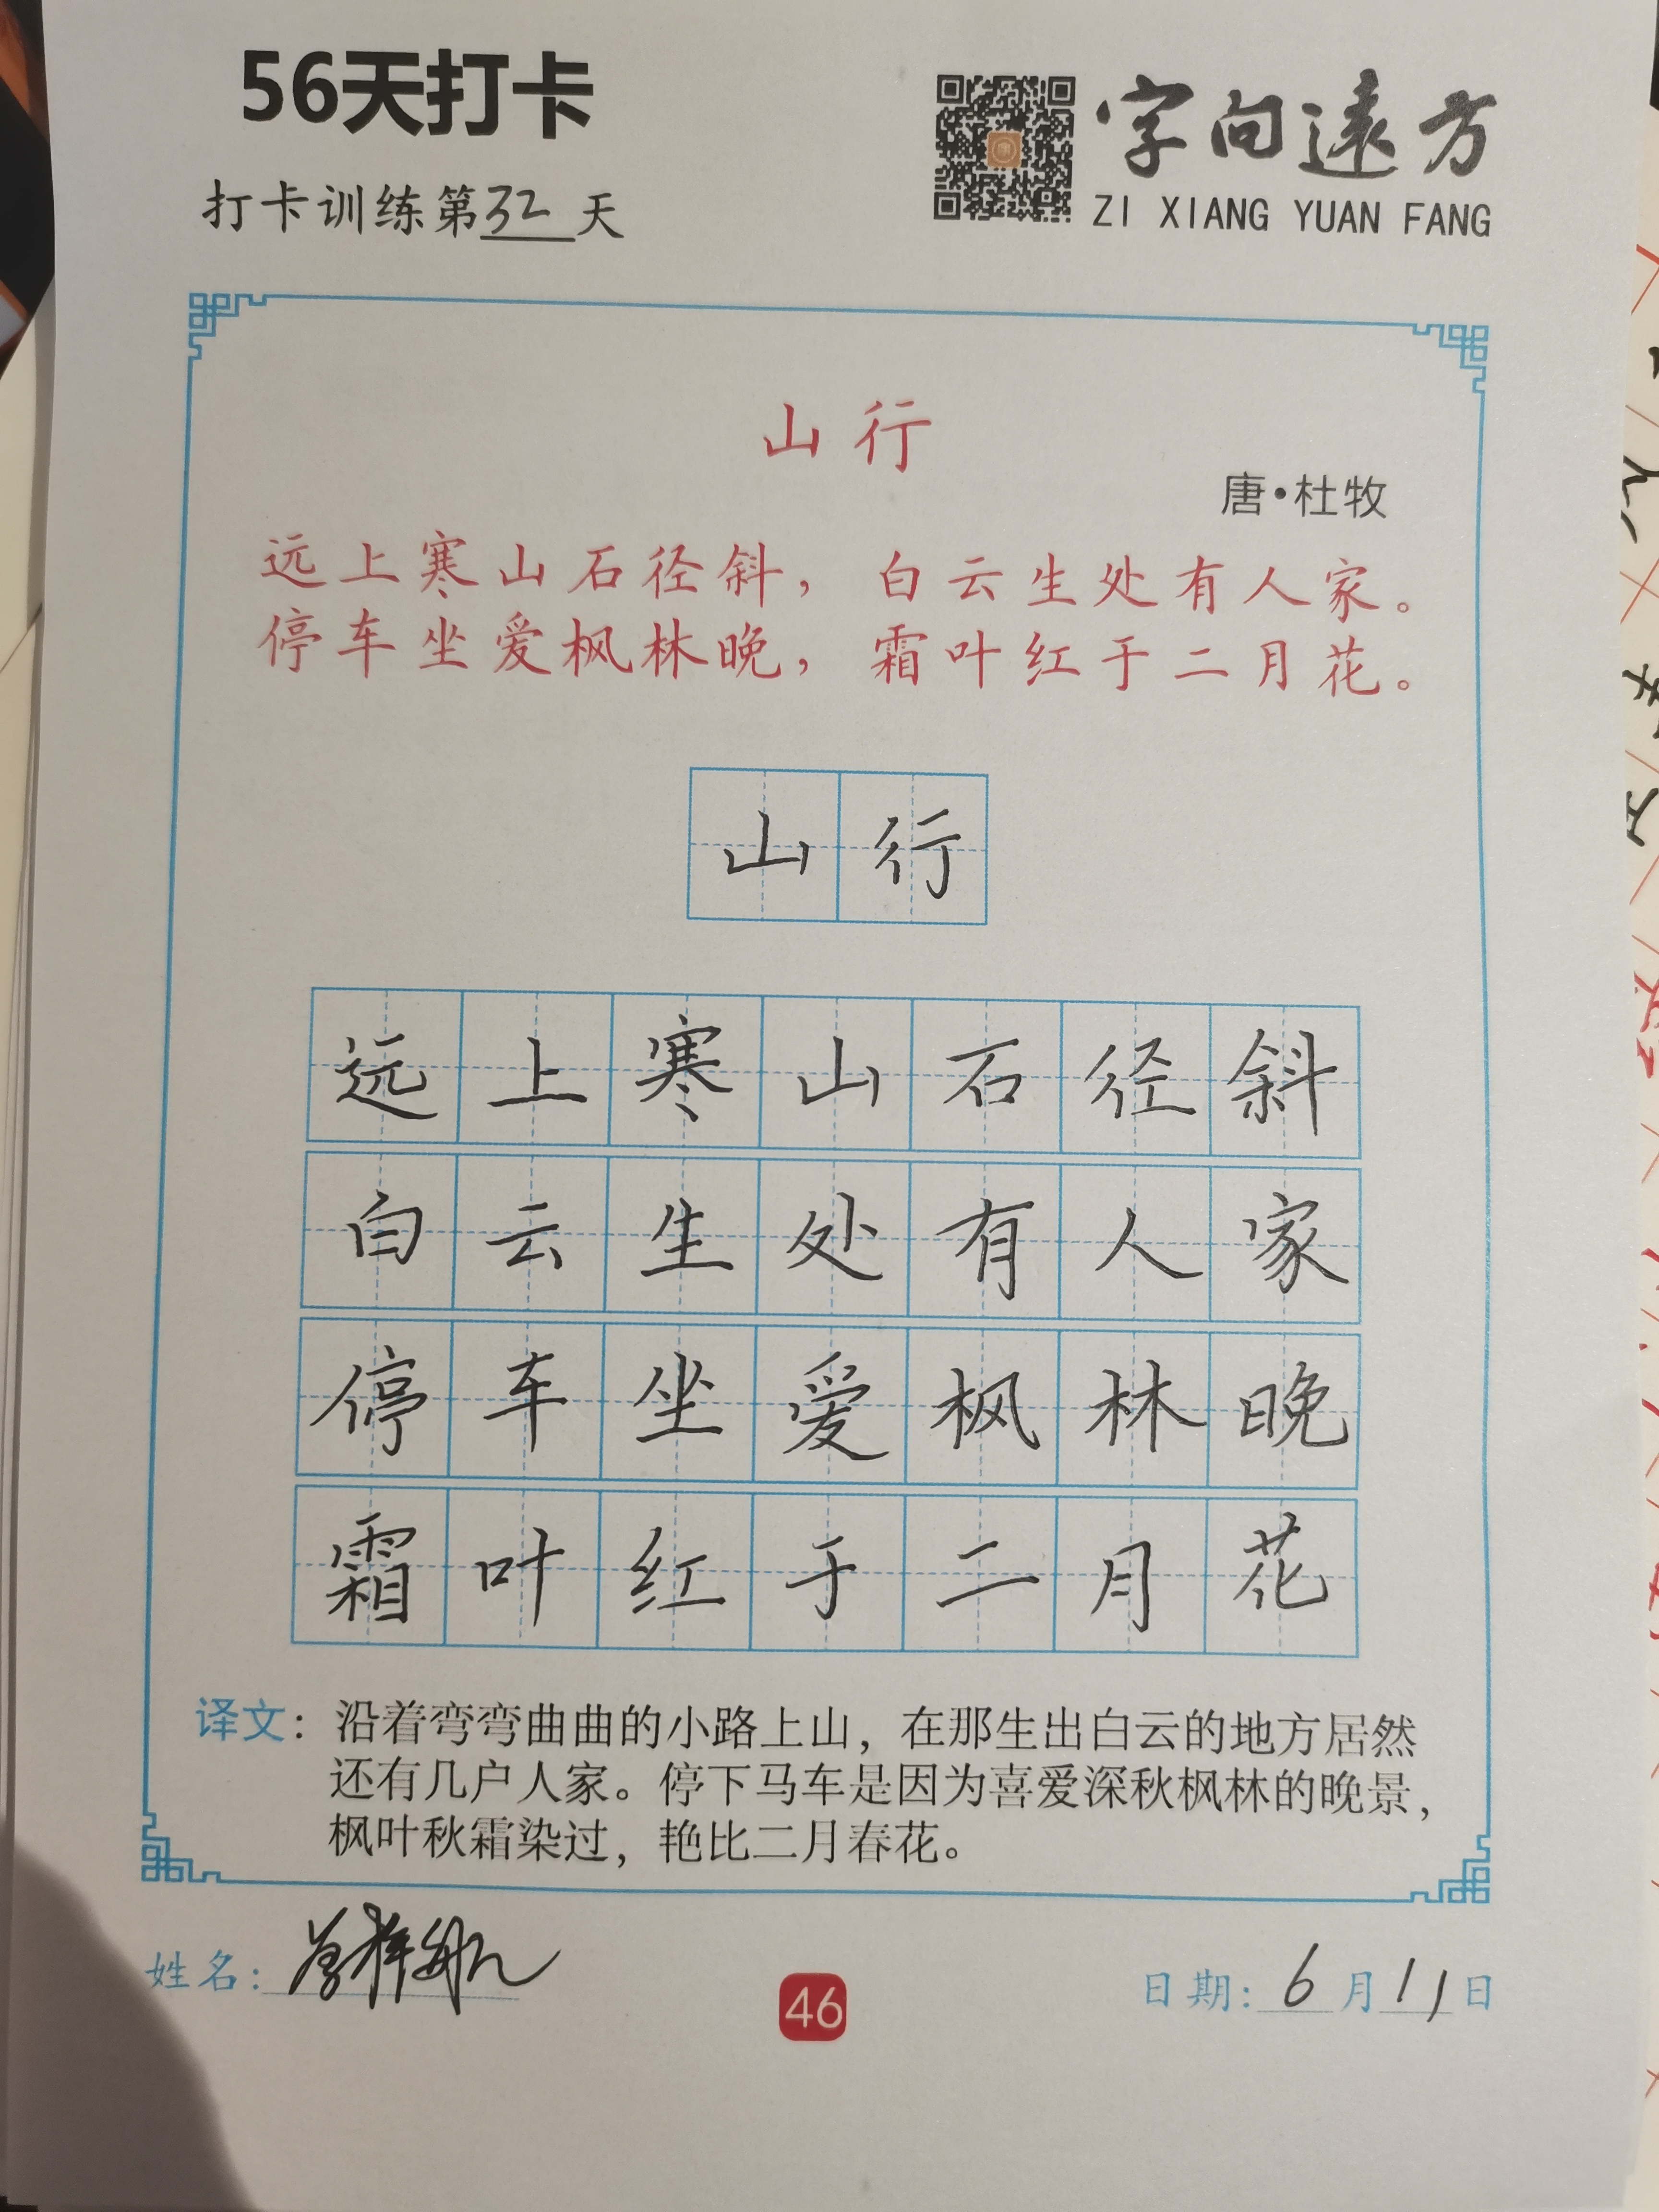 56天打卡
字向遠方
ZI XIANG YUAN FANG
打卡训练第32天
山行
唐·杜牧
远上寒山石径斜，白云生处有人家。
停车坐爱枫林晚，霜叶红于二月花。
山行
远上寒山石径斜
白云生处有人家
停车坐爱枫林晚
霜叶红于二月花
译文：沿着弯弯曲曲的小路上山，在那生出白云的地方居然
还有几户人家。停下马车是因为喜爱深秋枫林的晚景，
枫叶秋霜染过，艳比二月春花。
姓名：
46
日期：6月11日